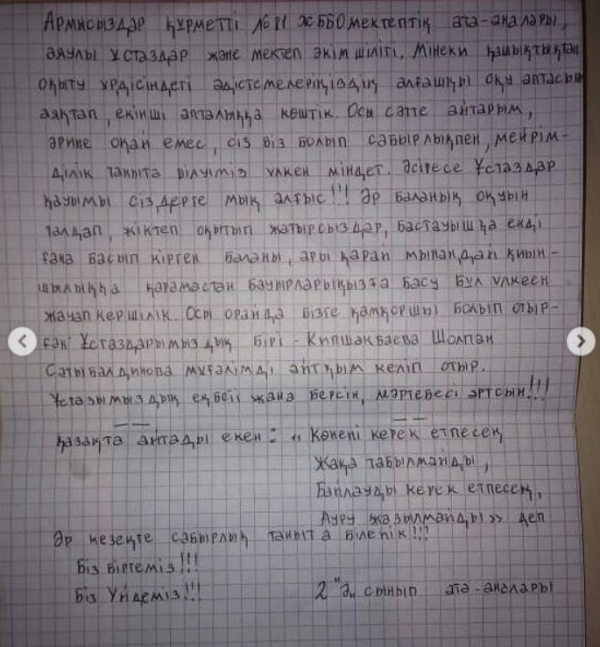 Армысыздар құрметті №81 ЖББОмектептің ата-аналары,
аяулы Ұстаздар және мектеп әкімшілігі. Мінеки қашықтықтан
оқыту үрдісіндегі әдістемелеріңіздің алғашқы оқу аптасын
аяқтап, екінші апталыққа көштік. Осы сәтте айтарым,
әрине оңай емес, сіз біз болып сабырлықпен, мейрім-
ділік таныта білуіміз үлкен міндет. Әсіресе Ұстаздар
қауымы сіздерге мың алғыс!!! Әр баланың оқуын
талдап, жіктеп оқытып жатырсыздар, бастауышқа енді
ғана басып кірген баланы, ары қарай мынандай қиын-
шылыққа қарамастан бауырларыңызға басу бұл үлкеен
жауапкершілік. Осы орайда бізге қамқоршы болып отыр-
ған Ұстаздарымыздың бірі - Кипшакбаева Шолпан
Сатыбалдиновa мұғалімді айтқым келіп отыр.
Ұстазымыздың еңбегі жана берсін, мәртебесі артсын!!!
Қазақта айтады екен: «Көнені керек етпесең
Жаңа табылмайды,
Байлауды керек етпесең,
Ауру жазылмайды» деп
Әр кезеңге сабырлық таныта білейік!!!
Біз біргеміз!!!
Біз Үйдеміз!!!
2 "Ә" сынып ата-аналары